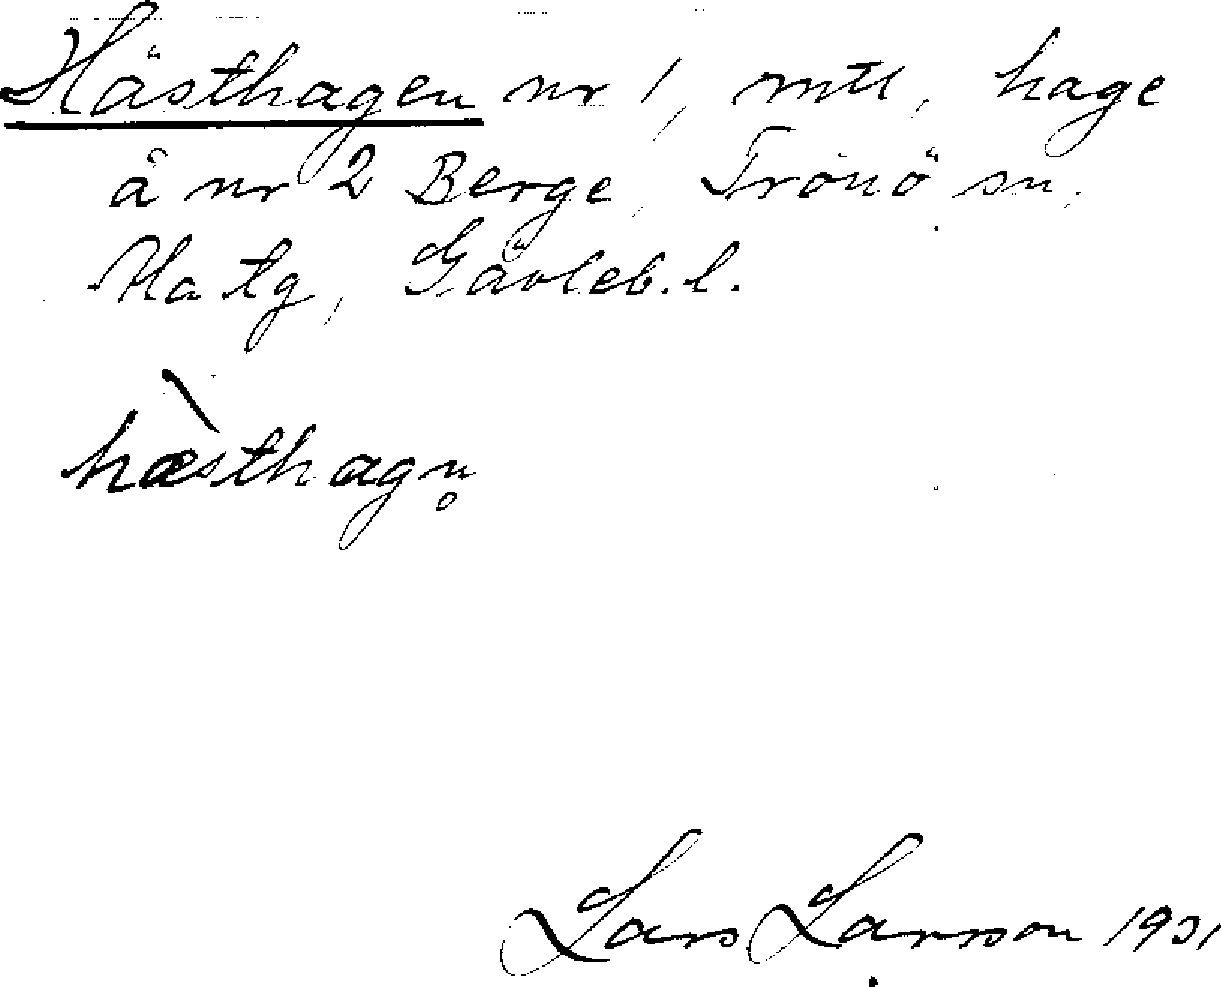 Hästhagen nr 1, mtl, hage
å nr 2 Berge, Trönö sn.
Ha tg, Gävleb. l.
hæ̀sthagn̥
Lars Larsson 1931